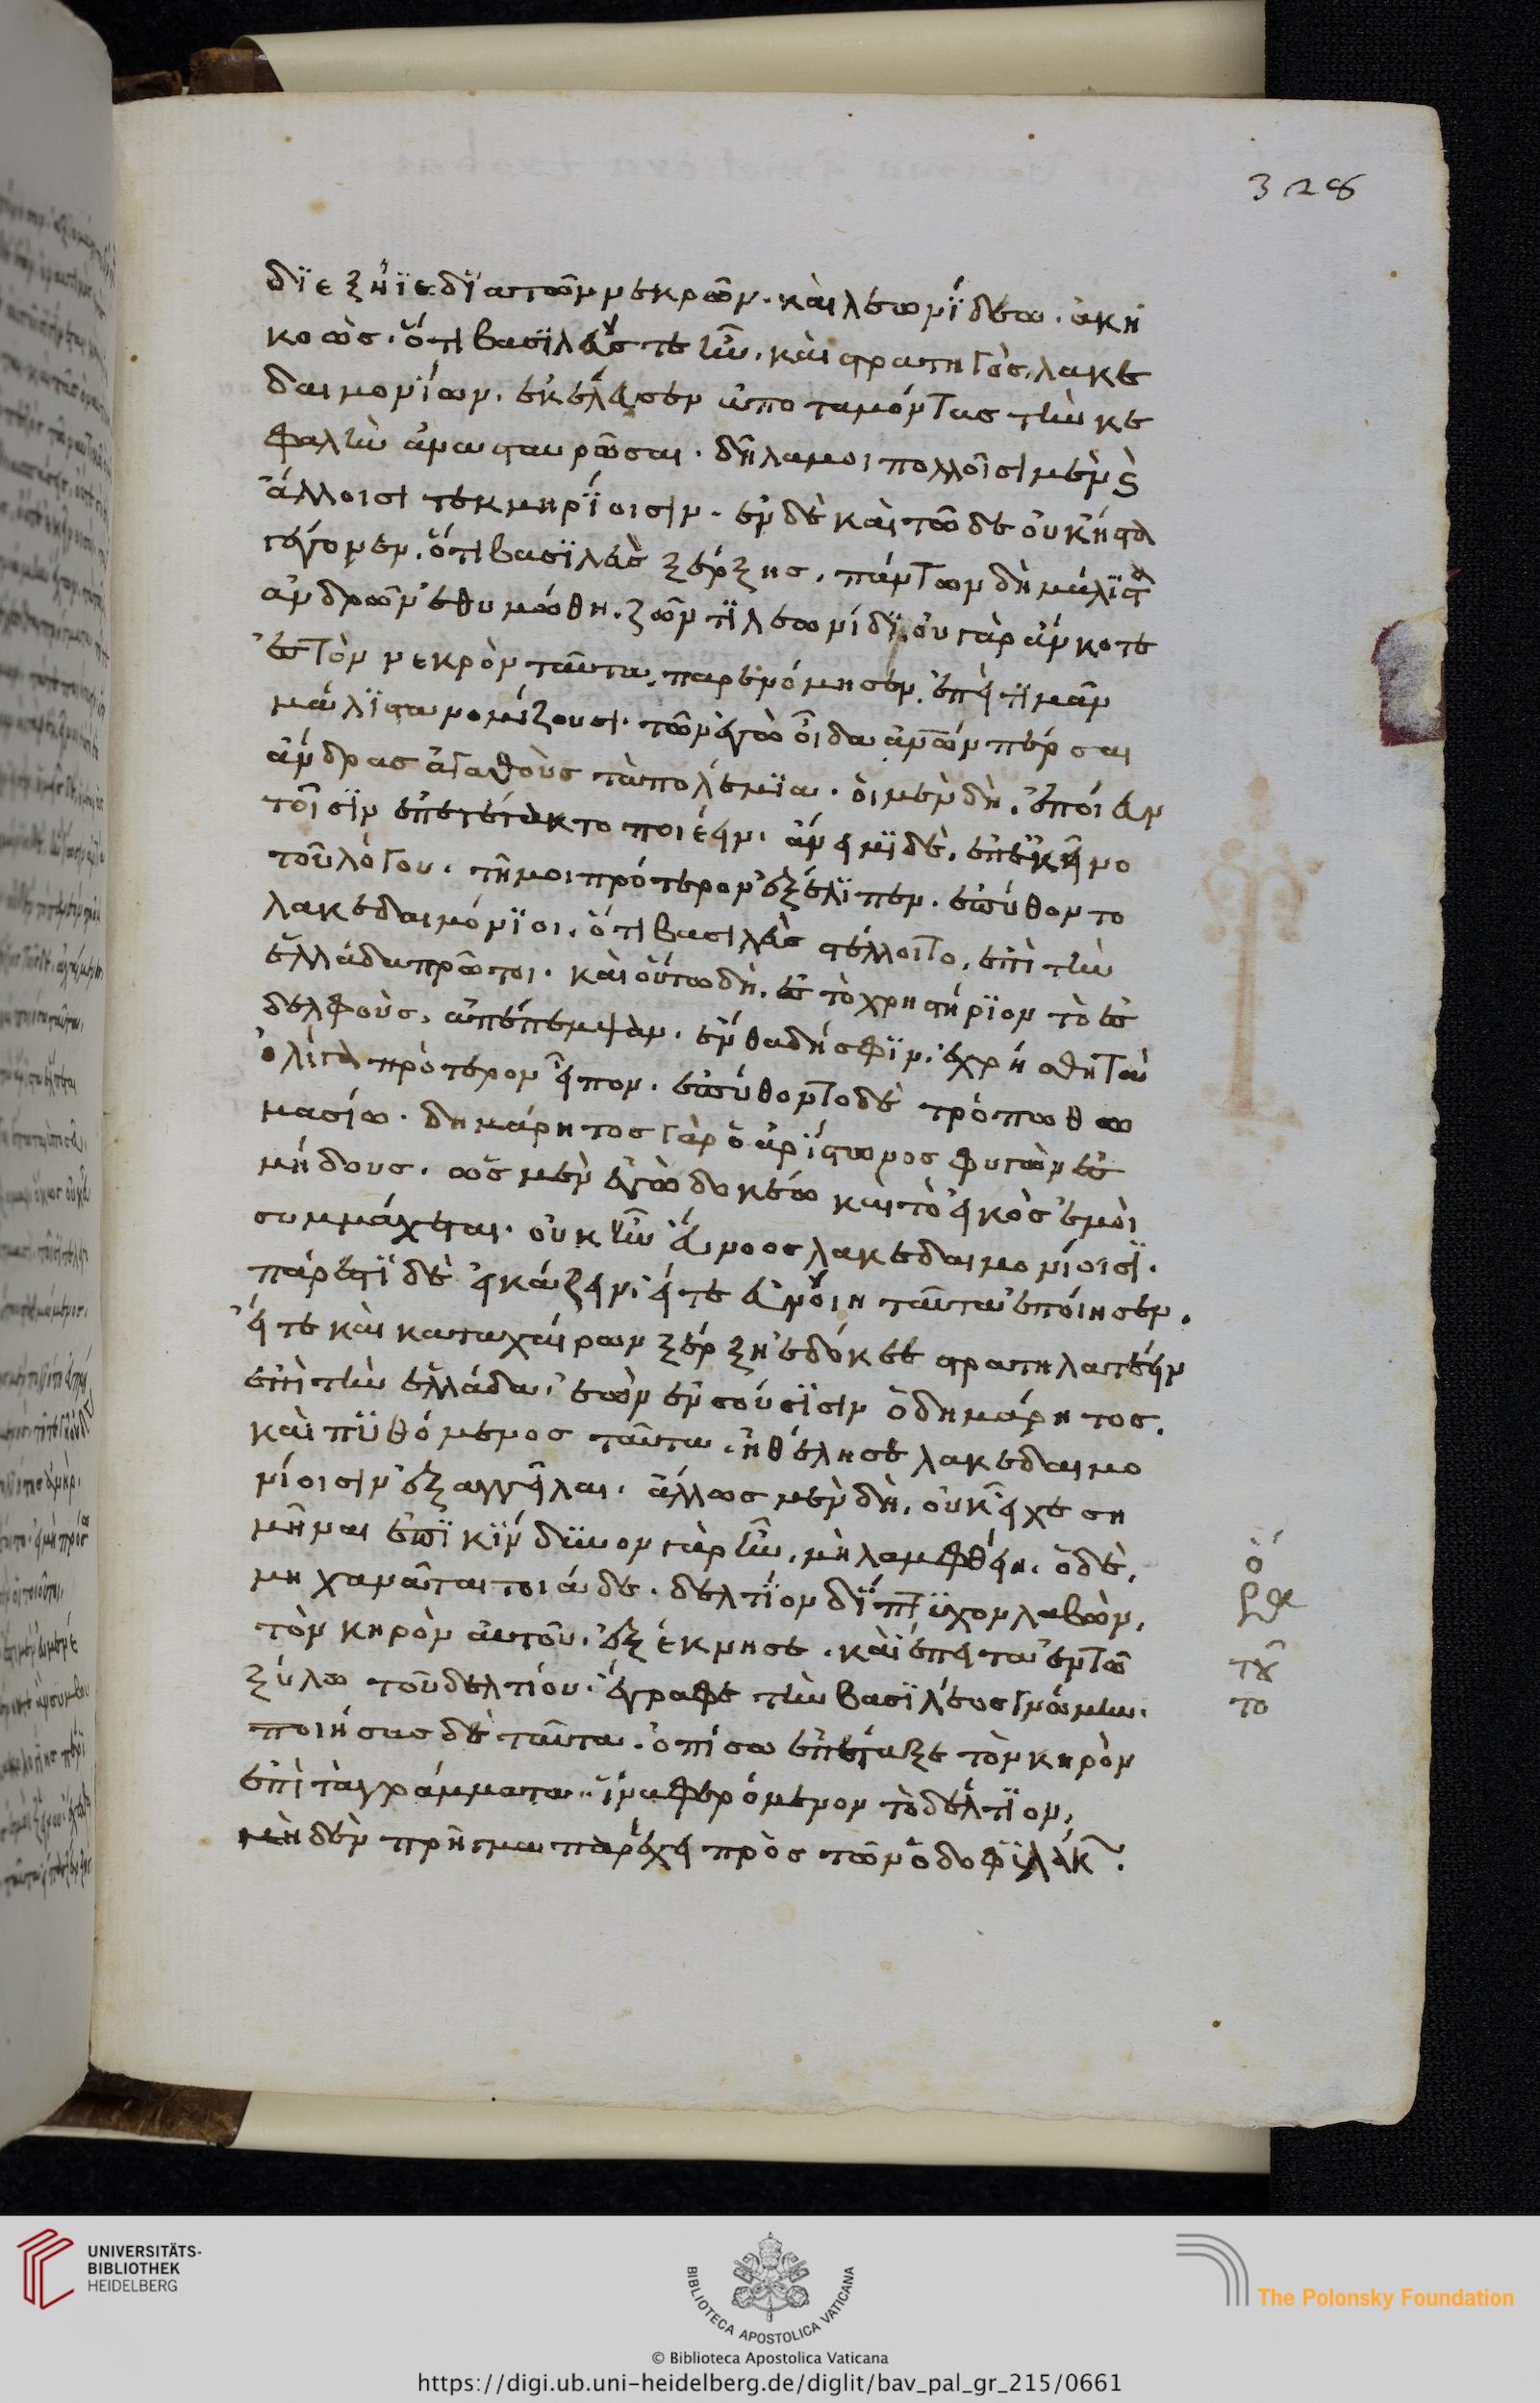 328
διεξήϊε διὰ τῶν νεκρῶν. καὶ λεωνίδεω. ἀκη
κοὼς. ὅτι βασιλεύς τε ἦν. καὶ στρατηγὸς λακε
δαιμονίων. ἐκέλευσεν ἀποταμόντας τὴν κε
φαλὴν ἀνασταυρῶσαι. δῆλά μοι πολλοῖσι μὲν καὶ
ἄλλοισι τεκμηρίοισιν. ἐν δὲ καὶ τῶδε οὐκ ἥκιστα
γέγονεν. ὅτι βασιλεὺς ξέρξης. πάντων δὴ μάλιστα
ἀνδρῶν ἐθυμώθη. ζῶντι λεωνίδι. οὐ γὰρ ἄν κοτε
ἐς τὸν νεκρὸν ταῦτα παρενόμησεν. ἐπεὶ τιμᾶν
μάλιστα νομίζουσι. τῶν ἐγὼ οἶδα ἀνθρώπων πέρσαι
ἄνδρας ἀγαθοὺς τὰ πολέμια. οἱ μὲν δὴ. ἐποίευν
τοῖσιν ἐπετέτακτο ποιέειν. ἄνειμι δὲ. ἐπ' ἐκεῖνο
τοῦ λόγου. τῆ μοι πρότερον ἐξέλιπεν. ἐπύθοντο
λακεδαιμόνιοι. ὅτι βασιλεὺς στέλλοιτο. ἐπὶ τὴν
ἑλλάδα πρῶτοι. καὶ οὕτω δὴ. ἐς τὸ χρηστήριον τὸ ἐς
δελφοὺς. ἀπέπεμψαν. ἔνθα δή σφιν. ἐχρήσθη τὰ
ὀλίγω πρότερον εἶπον. ἐπύθοντο δὲ τρόπω θω
μασίω. δημάρητος γὰρ ὁ ἀρίστωνος φυγὼν ἐς
μήδους. ὡς μὲν ἐγὼ δοκέω καὶ τὸ εἰκὸς ἐμοὶ
συμμάχεται. οὐκ ἦν εὔνοος λακεδαιμονίοισι.
πάρεστι δὲ εἰκάζειν. εἴτε εὐνοίη ταῦτα ἐποίησεν.
εἴτε καὶ καταχαίρων ξέρξη ἐδόκεε στρατηλατέειν
ἐπὶ τὴν ἑλλάδα. ἐὼν ἐν σούσισιν ὁ δημάρητος.
καὶ πυθόμενος ταῦτα. ἠθέλησε λακεδαιμο
νίοισιν ἐξαγγεῖλαι. ἄλλως μὲν δὴ. οὐκ εἶχε ση
μῆναι ἐπικίνδυνον γὰρ ἦν. μὴ λαμφθείη. ὁ δὲ.
μηχανᾶται τοιάδε. δελτίον δίπτυχον λαβὼν.
τὸν κηρὸν αὐτοῦ. ἐξέκνησε. καὶ ἔπειτα ἐν τῶ
ξύλω τοῦ δελτίου. ἔγραφε τὴν βασιλέος γνώμην.
ποιήσας δὲ ταῦτα. ὀπίσω ἐπέταξε τὸν κηρὸν
ἐπὶ τὰ γράμματα. ἵνα φερόμενον τὸ δελτίον.
μηδὲν πρῆγμα παρέχει πρὸς τῶν ὁδοφυλάκων.
UNIVERSITÄTS-
BIBLIOTHEK
HEIDELBERG
BIBLIOTECA APOSTOLICA VATICANA
The Polonsky Foundation
© Biblioteca Apostolica Vaticana
https://digi.ub.uni-heidelberg.de/diglit/bav_pal_gr_215/0661